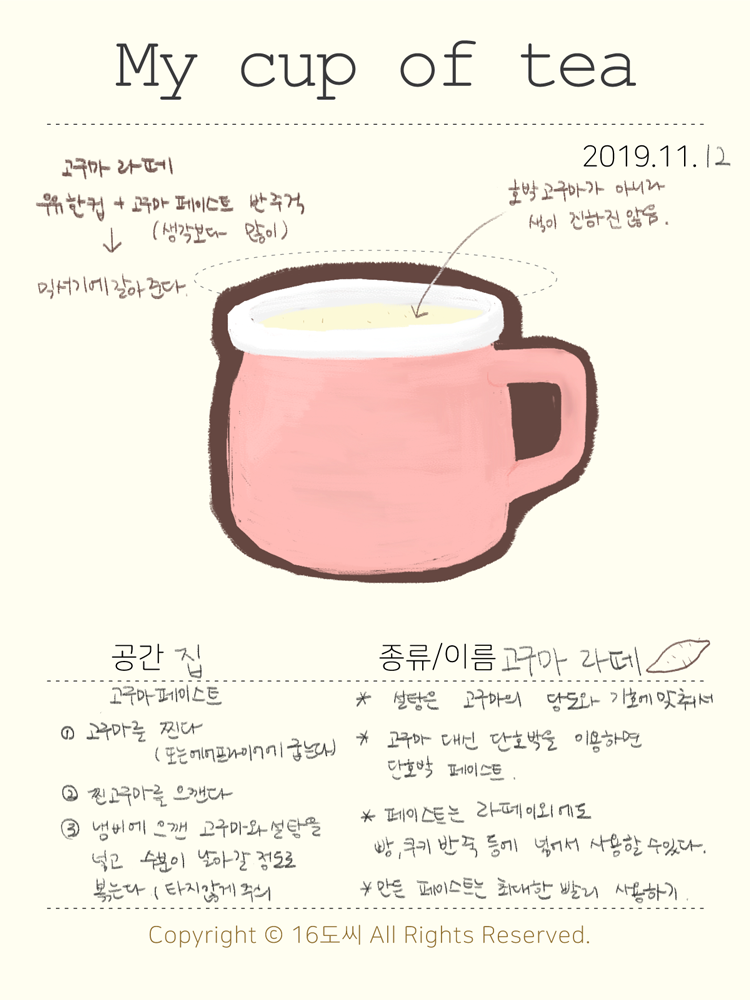 My cup of tea
2019.11.12
고구마 라떼
우유한컵 + 고구마 페이스트 밥주걱
(생각보다 많이)
↓
믹서기에 갈아 준다.
호박고구마가 아니라
색이 진하진 않음.
공간 집
종류/이름 고구마 라떼
고구마페이스트
① 고구마를 찐다
(또는 에어프라이어에 굽는다)
② 찐고구마를 으깬다
③ 냄비에 으깬 고구마와 설탕을
넣고 수분이 날아갈 정도로
볶는다 (타지않게 주의
* 설탕은 고구마의 당도와 기호에 맞춰서
* 고구마 대신 단호박을 이용하면
단호박 페이스트.
* 페이스트는 라떼이외에도
빵, 쿠키 반죽 등에 넣어서 사용할 수있다.
* 만든 페이스트는 최대한 빨리 사용하기.
Copyright © 16도씨 All Rights Reserved.